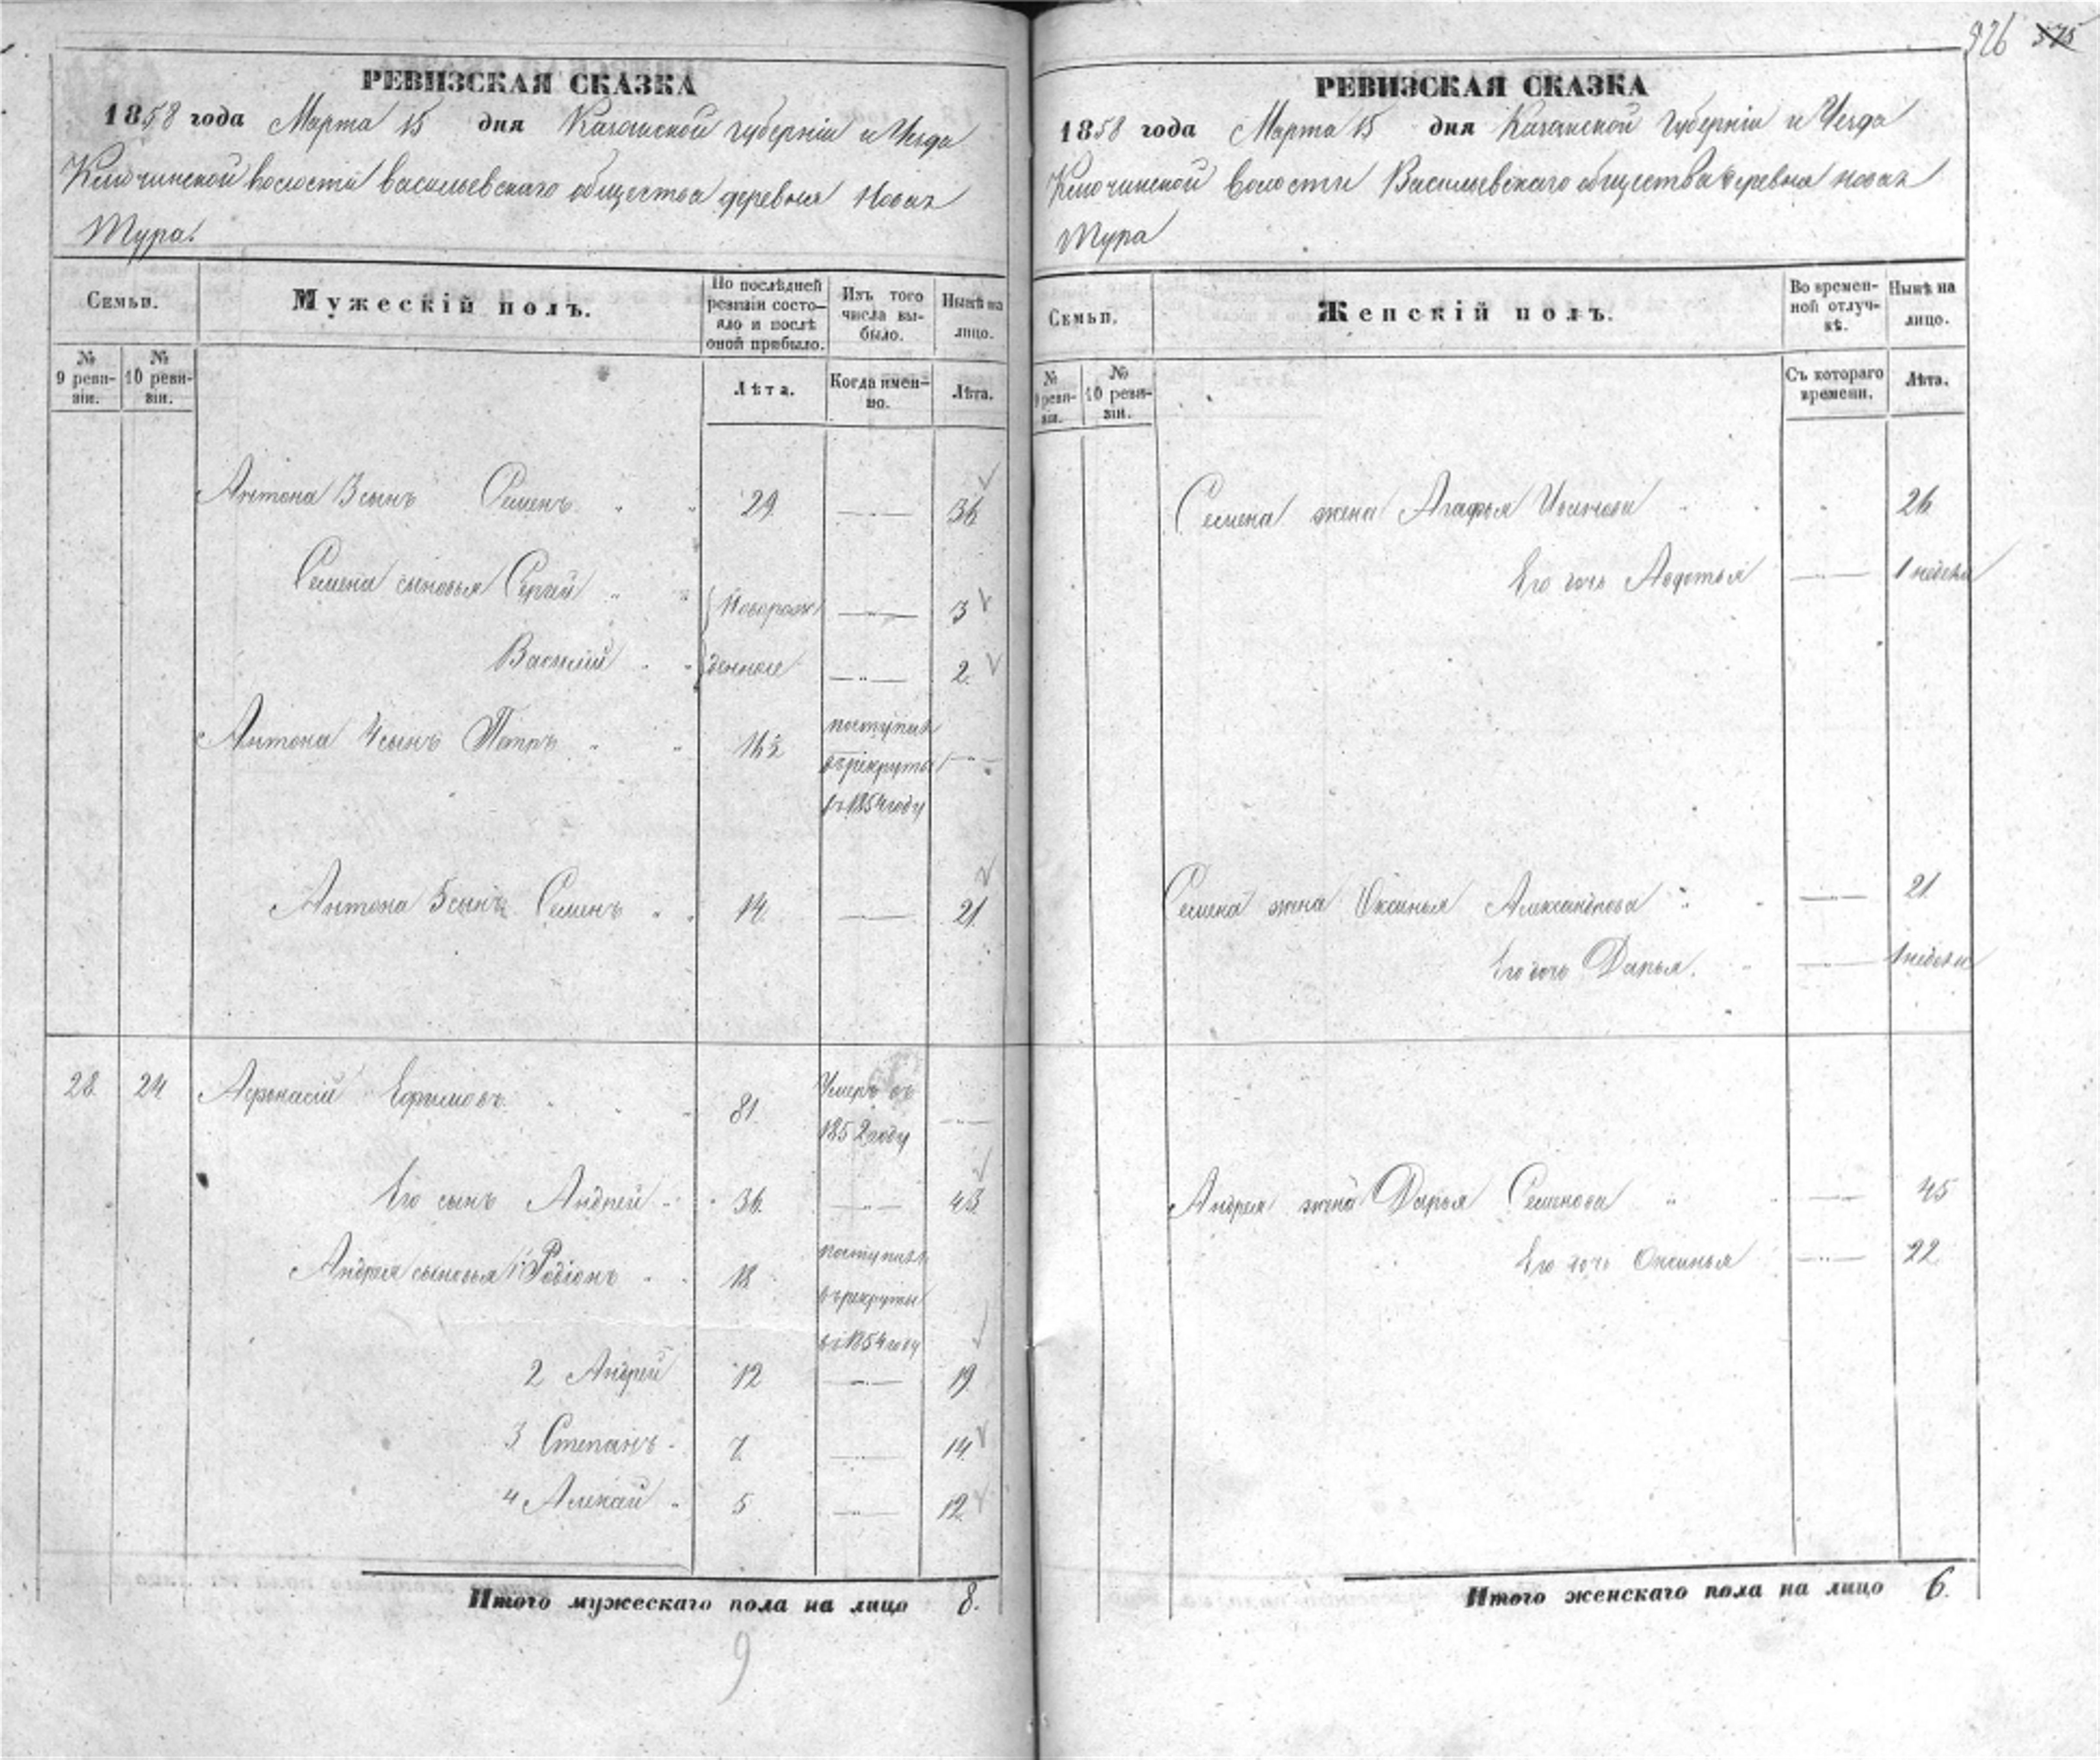 926 375
РЕВИЗСКАЯ СКАЗКА
1858 года Марта 15 дня Казанской губерніи и Уезда
Ключинской волости Васильевскаго общества деревня Новая
Тура.
Семьи.
Мужескій полъ.
По послѣдней ревизіи состо-
яло и послѣ оной прибыло.
Изъ того числа вы-
было.
Нынѣ на лицо.
№ 9 реви-
зіи.
№ 10 реви-
зіи.
Лѣта.
Когда имен-
но.
Лѣта.
Антона 3 сынъ Семенъ " " 29 —"— 36
Семена сыновья Сергей " " Новорож —"— 3
Василій " " денные —"— 2.
Антона 4 сынъ Петръ " " 16½ поступилъ —"—
въ рекруты
въ 1854 году
Антона 5 сынъ Семенъ " " 14. —"— 21.
28. 24 Афонасій Ефимовъ. " " 81. Умеръ въ —"—
1852 году
Его сынъ Андрей " " 36. —"— 43.
Андрея сыновья 1 Родіонъ " " 18 поступилъ
въ рекруты
въ 1854 году
2 Андрей 12 —"— 19.
3 Степанъ " 7. —"— 14.
4 Алексей " 5 —"— 12.
Итого мужескаго пола на лицо 8.
9
РЕВИЗСКАЯ СКАЗКА
1858 года Марта 15 дня Казанской Губерніи и Уезда
Ключинской Волости Васильевскаго общества деревня новая
Тура
Семьи.
Женскій полъ.
Во времен-
ной отлуч-
кѣ.
Нынѣ на лицо.
№ 9 реви-
зіи.
№ 10 реви-
зіи.
Съ котораго времени.
Лѣта.
Семена жена Агафья Иванова " " " 26
Его дочь Авдотья —"— 1 недели
Семена жена Оксинья Александрова " " —"— 21.
Его дочь Дарья. " —"— 1 недели
Андрея жена Дарья Семенова " " —"— 45
Его дочь Оксинья —"— 22
Итого женскаго пола на лицо 6.